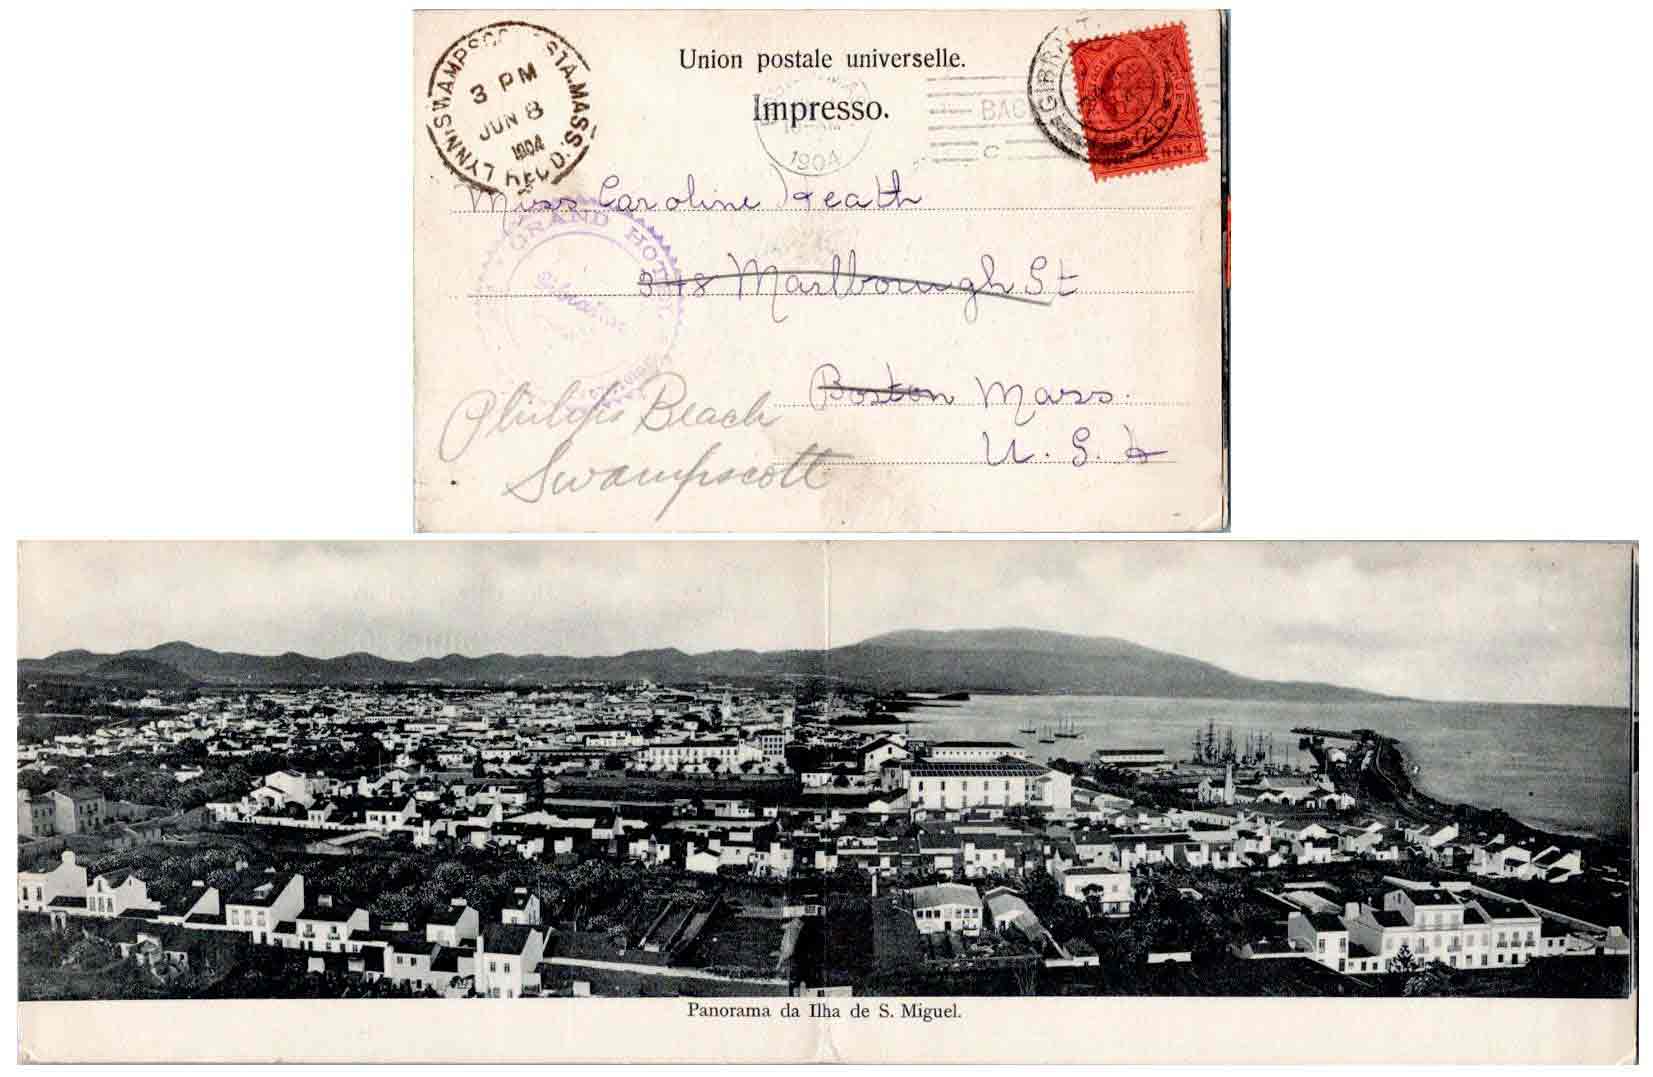 LYNN: SWAMPSCO STA. MASS.
3 PM
JUN 8
1904
REC'D.
Union postale universelle.
Impresso.
1904
BAC
C
GIBRALT
A26
NE PENNY
Miss Caroline Heath
GRAND HOTEL
Gibraltar
348 Marlborough St
Boston Mass.
U. S. A
Philips Beach
Swampscott
Panorama da Ilha de S. Miguel.